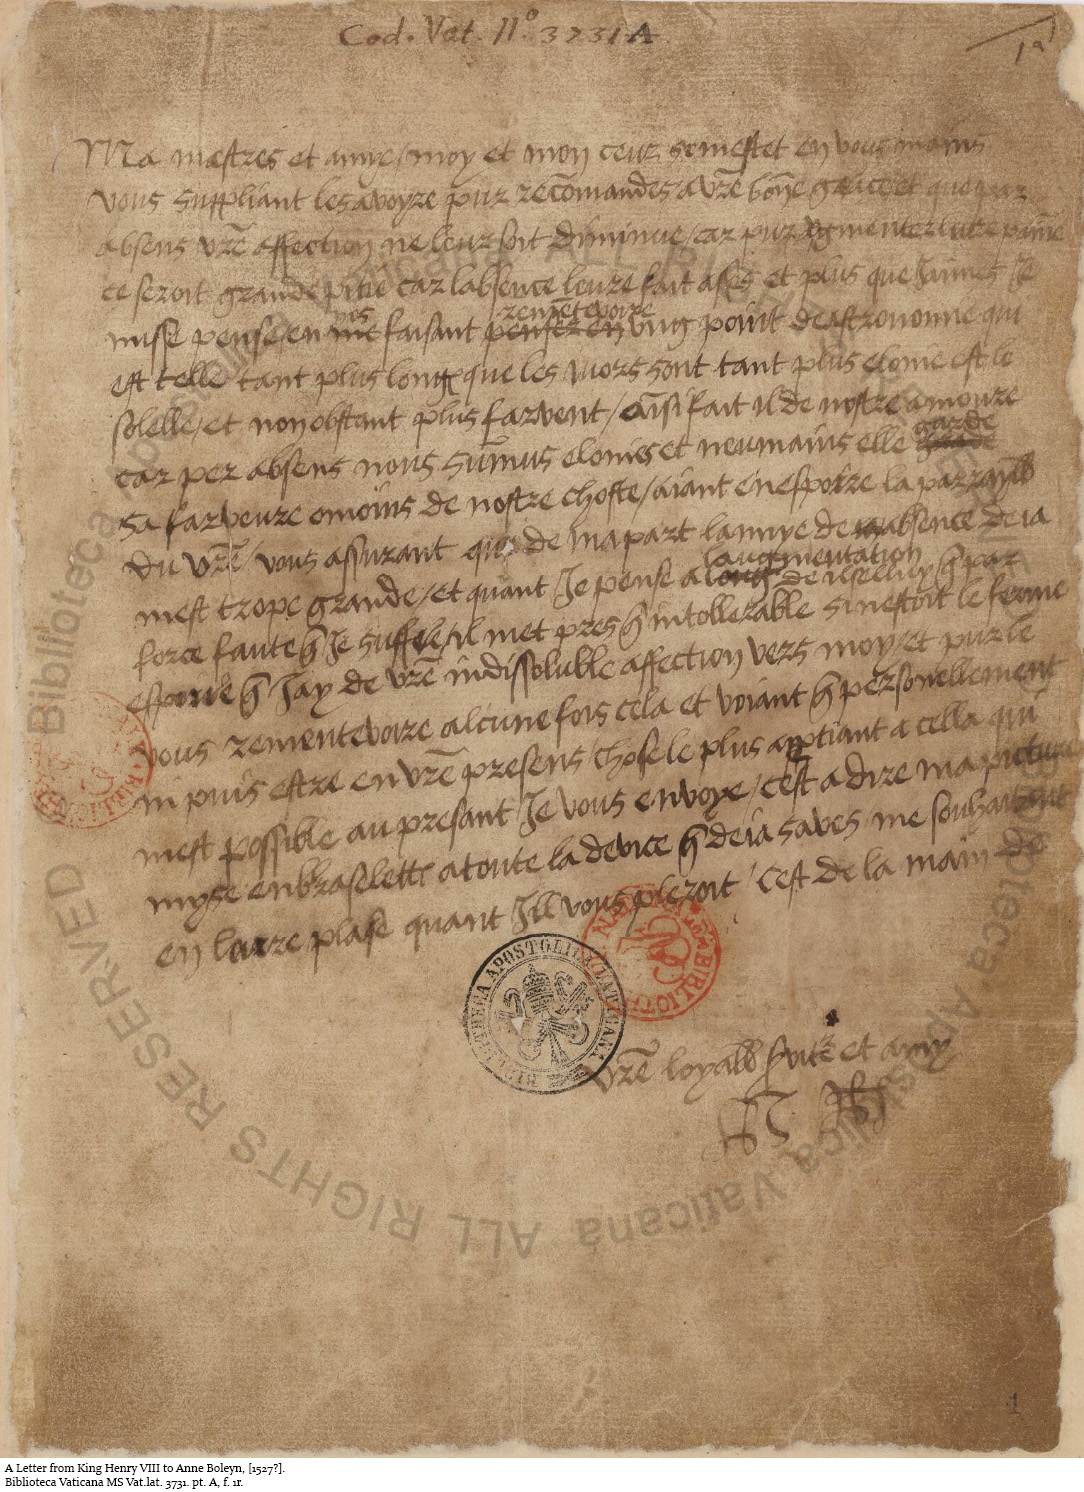 Cod. Vat. N.º 3731 A
1a
Ma mestres et amye moy et mon ceur s omestet en vous mains
vous suppliant les avoyre pur recōmandes a vrē bōne grace et que par
absens vrē affection ne leur soit diminue / car pur ogmenter leure paine
ce seroit grande pitie car l absence leure fait ases et plus que Jaimes Je
nusse pense / en nus faisant rementevoire ung point de astronomie qui
est telle tant plus long que les mors sont tant plus elonie est le
solelle / et non obstant plus farvent / ainsi fait il de nostre amoure
car per absens nous sūmus elonies et neumains elle garde
sa farveure omoins de nostre choste / aiant en espoire la parraylle
du vrē / vous assurant que de ma part l annye de absence deia
m est trope grande / et quant Je pense a l augmentation de ilcelluy q̄ par
force faute q̄ Je suffere / il m et pres q̄ intollerable s i n estoit le ferme
espoire q̄ Jay de vrē indissoluble affection vers moy / et pur le
vous rementevoire alcune fois cela et voiant q̄ personellement
ni puis estre en vrē presens chose le plus apptiant a cella qui
m est possible au presant Je vous envoye / c est a dire ma picture
myse en braselette a toute la device q̄ deia saves me souhaitant
en leure plase quant Ill vous pleroit / C est de la main de
vrē loyall s̄vitē et amy
H R
1
BIBLIOTHECA APOSTOLICA VATICANA
Biblioteca Apostolica Vaticana ALL RIGHTS RESERVED
A Letter from King Henry VIII to Anne Boleyn, [1527?].
Biblioteca Vaticana MS Vat.lat. 3731. pt. A, f. 1r.